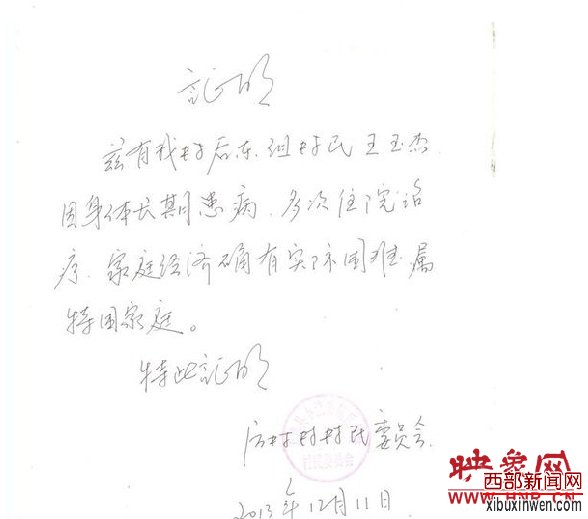 证明
兹有我村后东组村民王玉杰
因身体长期患病、多次住院治
疗、家庭经济确有实际困难属
特困家庭。
特此证明
后村村村民委员会
村民委员会
2013年12月11日
映象网
WWW.HNR.CN
西部新闻网
xibuxinwen.com